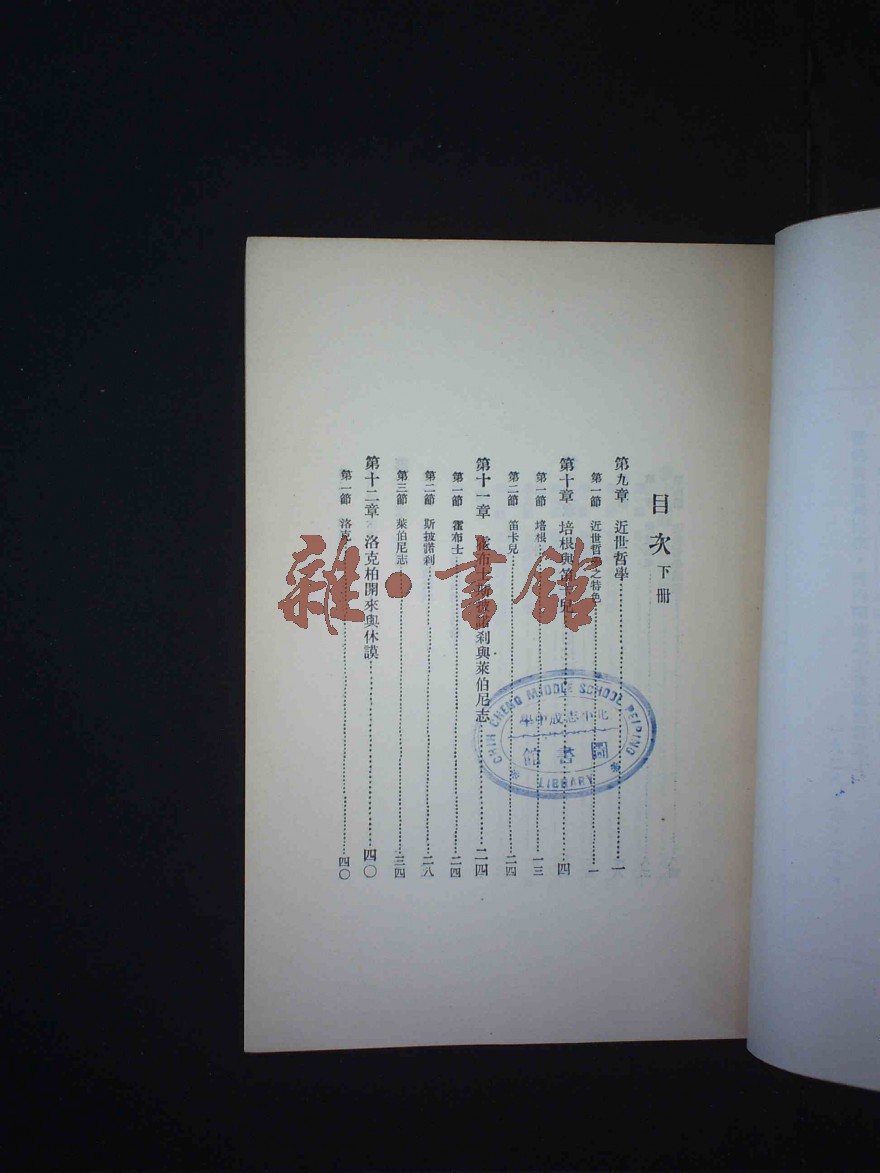 目次 下册
第九章 近世哲學 一
第一節 近世哲學之特色 一
第十章 培根與笛卡兒 四
第一節 培根 一三
第二節 笛卡兒 二四
第十一章 霍布士斯披諾刹與萊伯尼志 二四
第一節 霍布士 二四
第二節 斯披諾刹 二八
第三節 萊伯尼志 三四
第十二章 洛克柏開來與休謨 四〇
第一節 洛克 四〇
雜·書館
CHIH CHENG MIDDLE SCHOOL PEIPING
學中成志平北
館書圖
LIBRARY